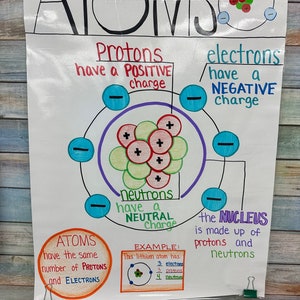 ATOMS
Protons
have a POSITIVE
charge
electrons
have a
NEGATIVE
charge
neutrons
have a
NEUTRAL
charge
the NUCLEUS
is made up of
protons and
neutrons
ATOMS
have the same
number of PROTONS
and ELECTRONS
EXAMPLE:
lithium atom has
3 electrons
3 protons
4 neutrons